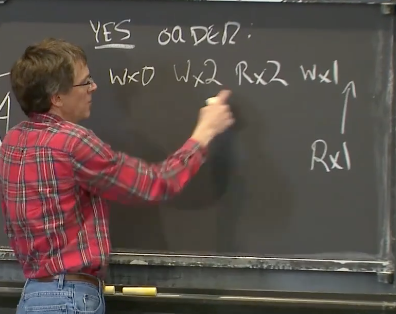 YES ORDER:
Wx0 Wx2 Rx2 Wx1
Rx1